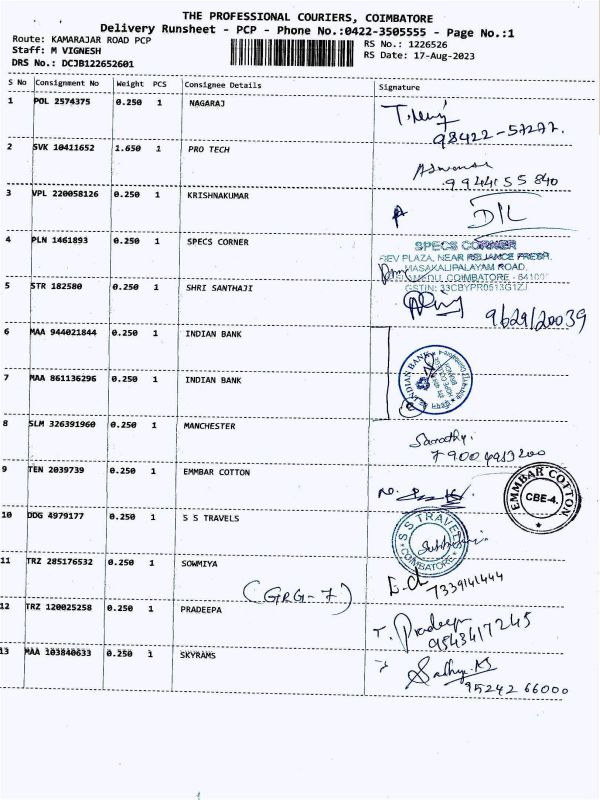 THE PROFESSIONAL COURIERS, COIMBATORE
Delivery Runsheet - PCP - Phone No.:0422-3505555 - Page No.:1
Route: KAMARAJAR ROAD PCP
RS No.: 1226526
Staff: M VIGNESH
RS Date: 17-Aug-2023
DRS No.: DCJB122652601
S No Consignment No Weight PCS Consignee Details Signature
1 POL 2574375 0.250 1 NAGARAJ
98422-57277.
2 SVK 10411652 1.650 1 PRO TECH
9944155840
3 VPL 220058126 0.250 1 KRISHNAKUMAR
D/L
4 PLN 1461893 0.250 1 SPECS CORNER
SPECS CORNER
PLAZA, NEAR RELIANCE FRESH,
MASAKALIPALAYAM ROAD,
COIMBATORE - 641004
GSTIN: 33CBYPR0513G1ZJ
5 STR 182580 0.250 1 SHRI SANTHAJI
9629120039
6 MAA 944021844 0.250 1 INDIAN BANK
INDIAN BANK
7 MAA 861136296 0.250 1 INDIAN BANK
8 SLM 326391960 0.250 1 MANCHESTER
Sarathy.
9 TEN 2039739 0.250 1 EMMBAR COTTON
EMMBAR COTTON
CBE-4.
10 DDG 4979177 0.250 1 S S TRAVELS
S S TRAVELS
COIMBATORE
11 TRZ 285176532 0.250 1 SOWMIYA
7339141444
(GRG-7)
12 TRZ 120025258 0.250 1 PRADEEPA
T. Pradeepa
9543417245
13 MAA 103840633 0.250 1 SKYRAMS
95242 66000